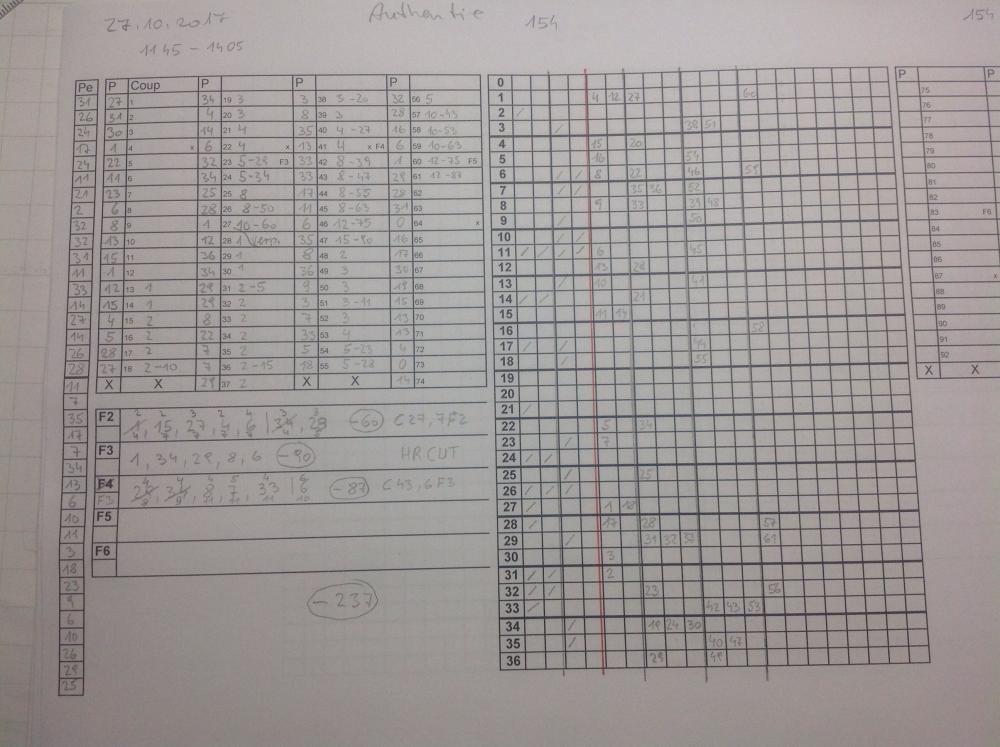 27.10.2017
1145 – 1405
Authentic
154
154
Pe P Coup P P P
31 27 1 34 19 3 3 38 3 -20 32 56 5
26 31 2 4 20 3 8 39 3 28 57 10-43
24 30 3 14 21 4 35 40 4 -27 16 58 10-53
17 1 4 x 6 22 4 x 13 41 4 x F4 6 59 10-63
24 22 5 32 23 5-29 F3 33 42 8 -39 1 60 12-75 F5
11 11 6 34 24 5-34 33 43 8 -47 29 61 12-87
21 23 7 25 25 8 17 44 8 -55 28 62
2 6 8 28 26 8-50 11 45 8-63 31 63
32 8 9 1 27 10-60 6 46 12-75 0 64 x
32 13 10 12 28 35 47 15-90 16 65
31 15 11 36 29 1 8 48 2 17 66
11 1 12 34 30 1 36 49 3 30 67
33 12 13 1 29 31 2 -5 9 50 3 19 68
14 15 14 1 29 32 2 3 51 3 -11 15 69
27 4 15 2 8 33 2 7 52 3 13 70
14 5 16 2 22 34 2 33 53 4 13 71
26 28 17 2 7 35 2 5 54 5-23 4 72
28 27 18 2 -10 7 36 2 -15 18 55 5 -28 0 73
11 X X 29 37 2 X X 14 74
7
35
17
7
34
13
6
10
11
3
18
23
9
6
10
26
29
25
F2 1, 15, 27, 4, 6 | 34, 29 -60 C 27, 7 F2
F3 1, 34, 29, 8, 6 -90 HR CUT
F4 F3 29, 34, 8, 7, 33 | 6 -87 C 43, 6 F3
F5
F6
-237
0
1 4 12 27 60
2 /
3 / 38 51
4 15 20
5 16 54
6 / / 8 22 46 59
7 / / 35 36 52
8 9 33 39 48
9 / 50
10 / /
11 / / / / 6 45
12 13 28
13 / 10 41
14 / / 21
15 11 14
16 58
17 / / 44
18 / 55
19
20
21 /
22 5 34
23 / 7
24 / /
25 / 25
26 / / /
27 / 1 18
28 / 17 26 57
29 / 31 32 37 61
30 3
31 / / 2
32 / / 23 56
33 / 42 43 53
34 / 19 24 30
35 / 40 47
36 29 49
P P
75
76
77
78
79
80
81
82
83 F6
84
85
86
87 x
88
89
90
91
92
X X